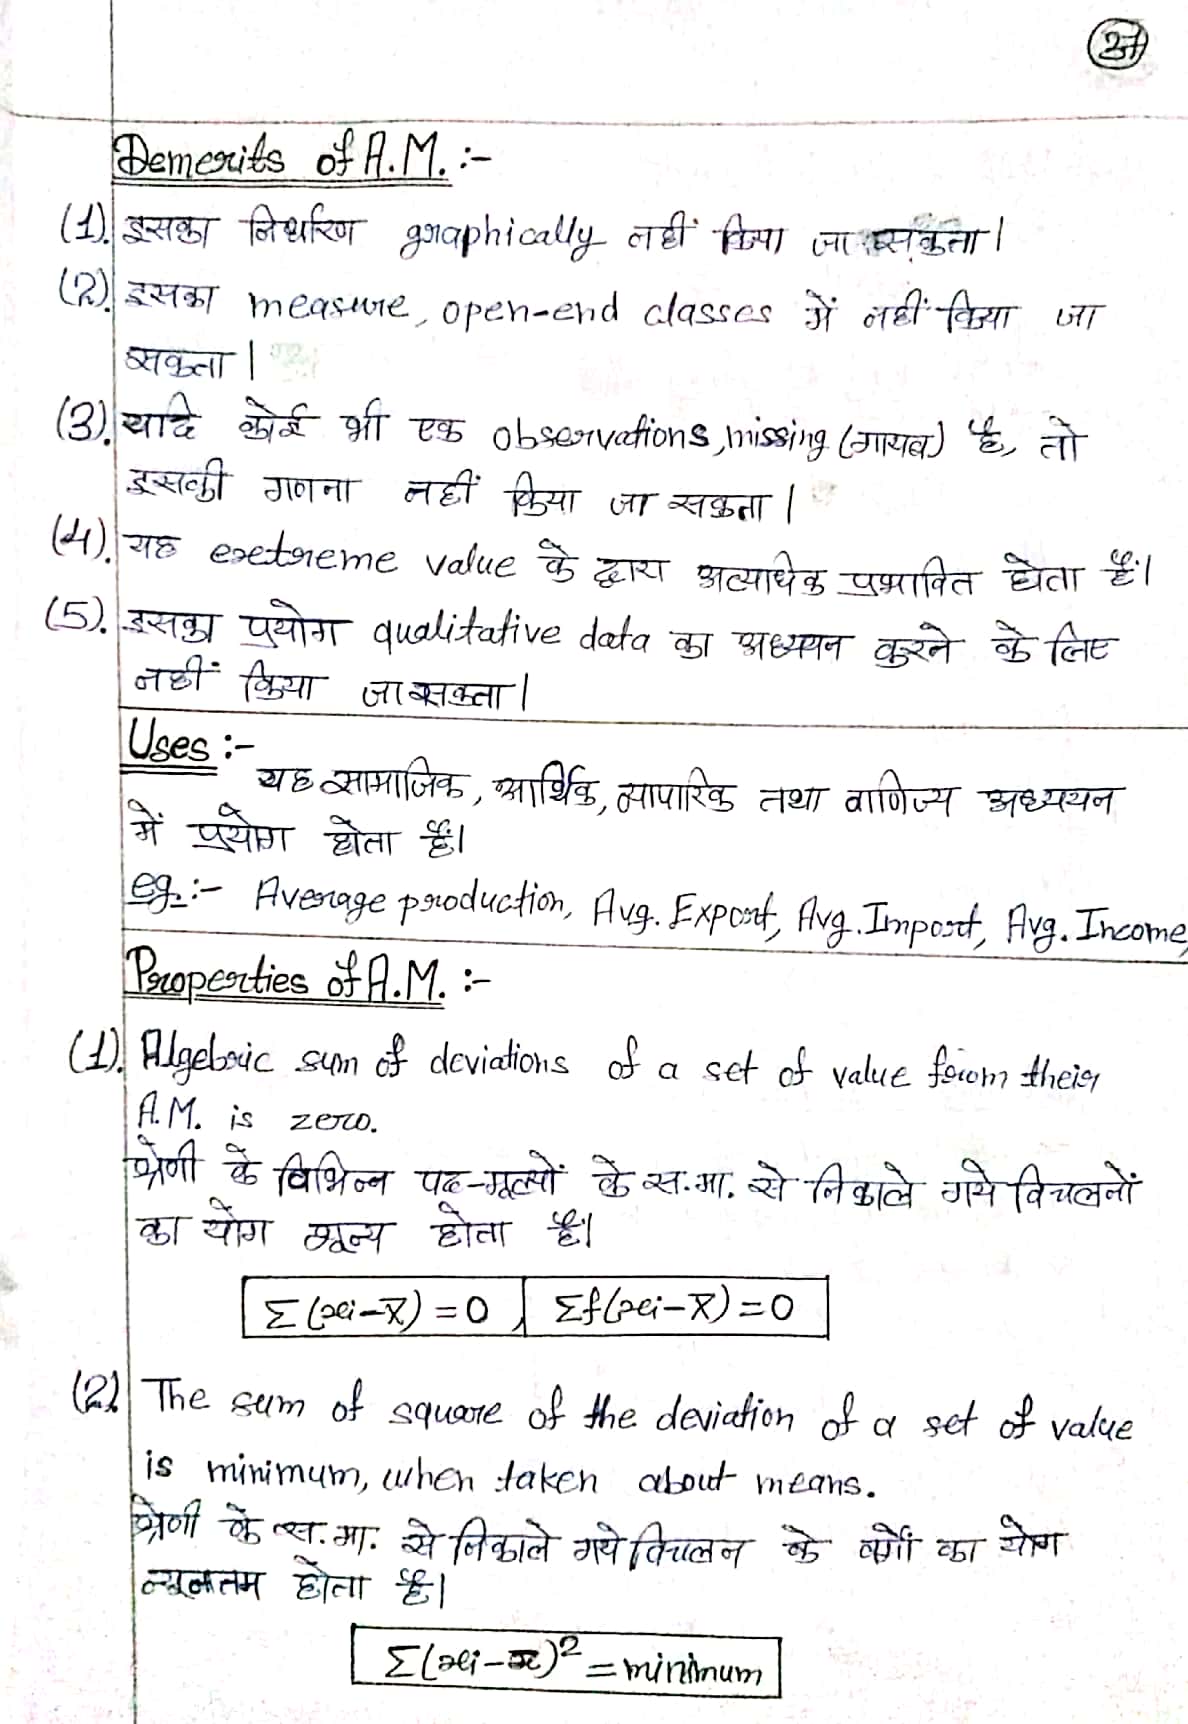 27
Demerits of A.M. :-
(1). इसका निर्धारण graphically नहीं किया जा सकता।
(2). इसका measure, open-end classes में नहीं किया जा
सकता।
(3). यदि कोई भी एक observations, missing (गायब) है, तो
इसकी गणना नहीं किया जा सकता।
(4). यह extreme value के द्वारा अत्याधिक प्रभावित होता हैं।
(5). इसका प्रयोग qualitative data का अध्ययन करने के लिए
नहीं किया जा सकता।
Uses :-
यह सामाजिक, आर्थिक, व्यापारिक तथा वाणिज्य अध्ययन
में प्रयोग होता हैं।
eg. :- Average production, Avg. Export, Avg. Import, Avg. Income,
Properties of A.M. :-
(1). Algebraic sum of deviations of a set of value from their
A.M. is zero.
श्रेणी के विभिन्न पद-मूल्यों के स.मा. से निकाले गये विचलनों
का योग शून्य होता हैं।
Σ(xi-X̄) = 0, Σf(xi-X̄) = 0
(2) The sum of square of the deviation of a set of value
is minimum, when taken about means.
श्रेणी के स.मा. से निकाले गये विचलन के वर्गों का योग
न्यूनतम होता है।
Σ(xi-x̄)² = minimum